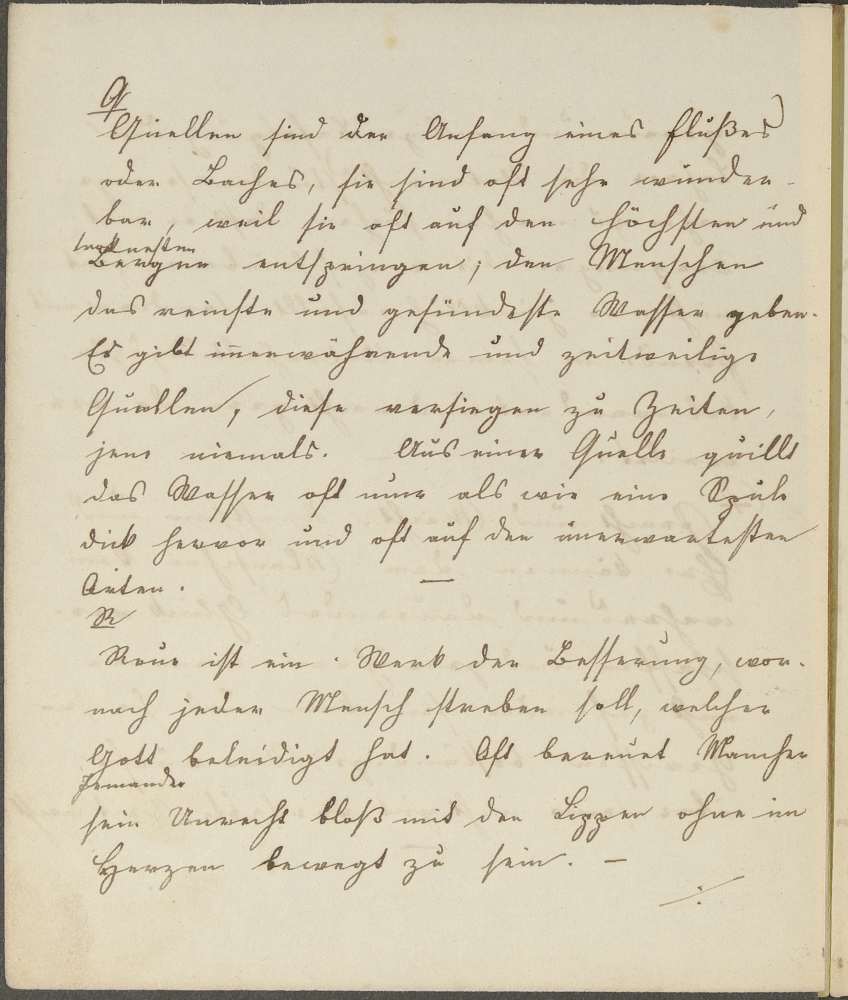 Q
Quellen sind der Anfang eines Flußes
oder Baches, sie sind oft sehr wunder-
bar, weil sie oft auf den höchsten und
trocknesten
Bergen entspringen; den Menschen
das reinste und gesündeste Wasser geben.
Es gibt im̅erwährende und zeitweilige
Quellen, diese versiegen zu Zeiten,
jene niemals. Aus einer Quelle quillt
das Wasser oft nur als wie eine Spule
dick hervor und oft auf den unerwartesten
Arten. —
R
Reue ist ein Werk der Besserung, wor-
nach jeder Mensch streben soll, welcher
Gott beleidigt hat. Oft bereuet Mancher
Jemander
sein Unrecht bloß mit den Lippen ohne im
Herzen bewegt zu sein. —